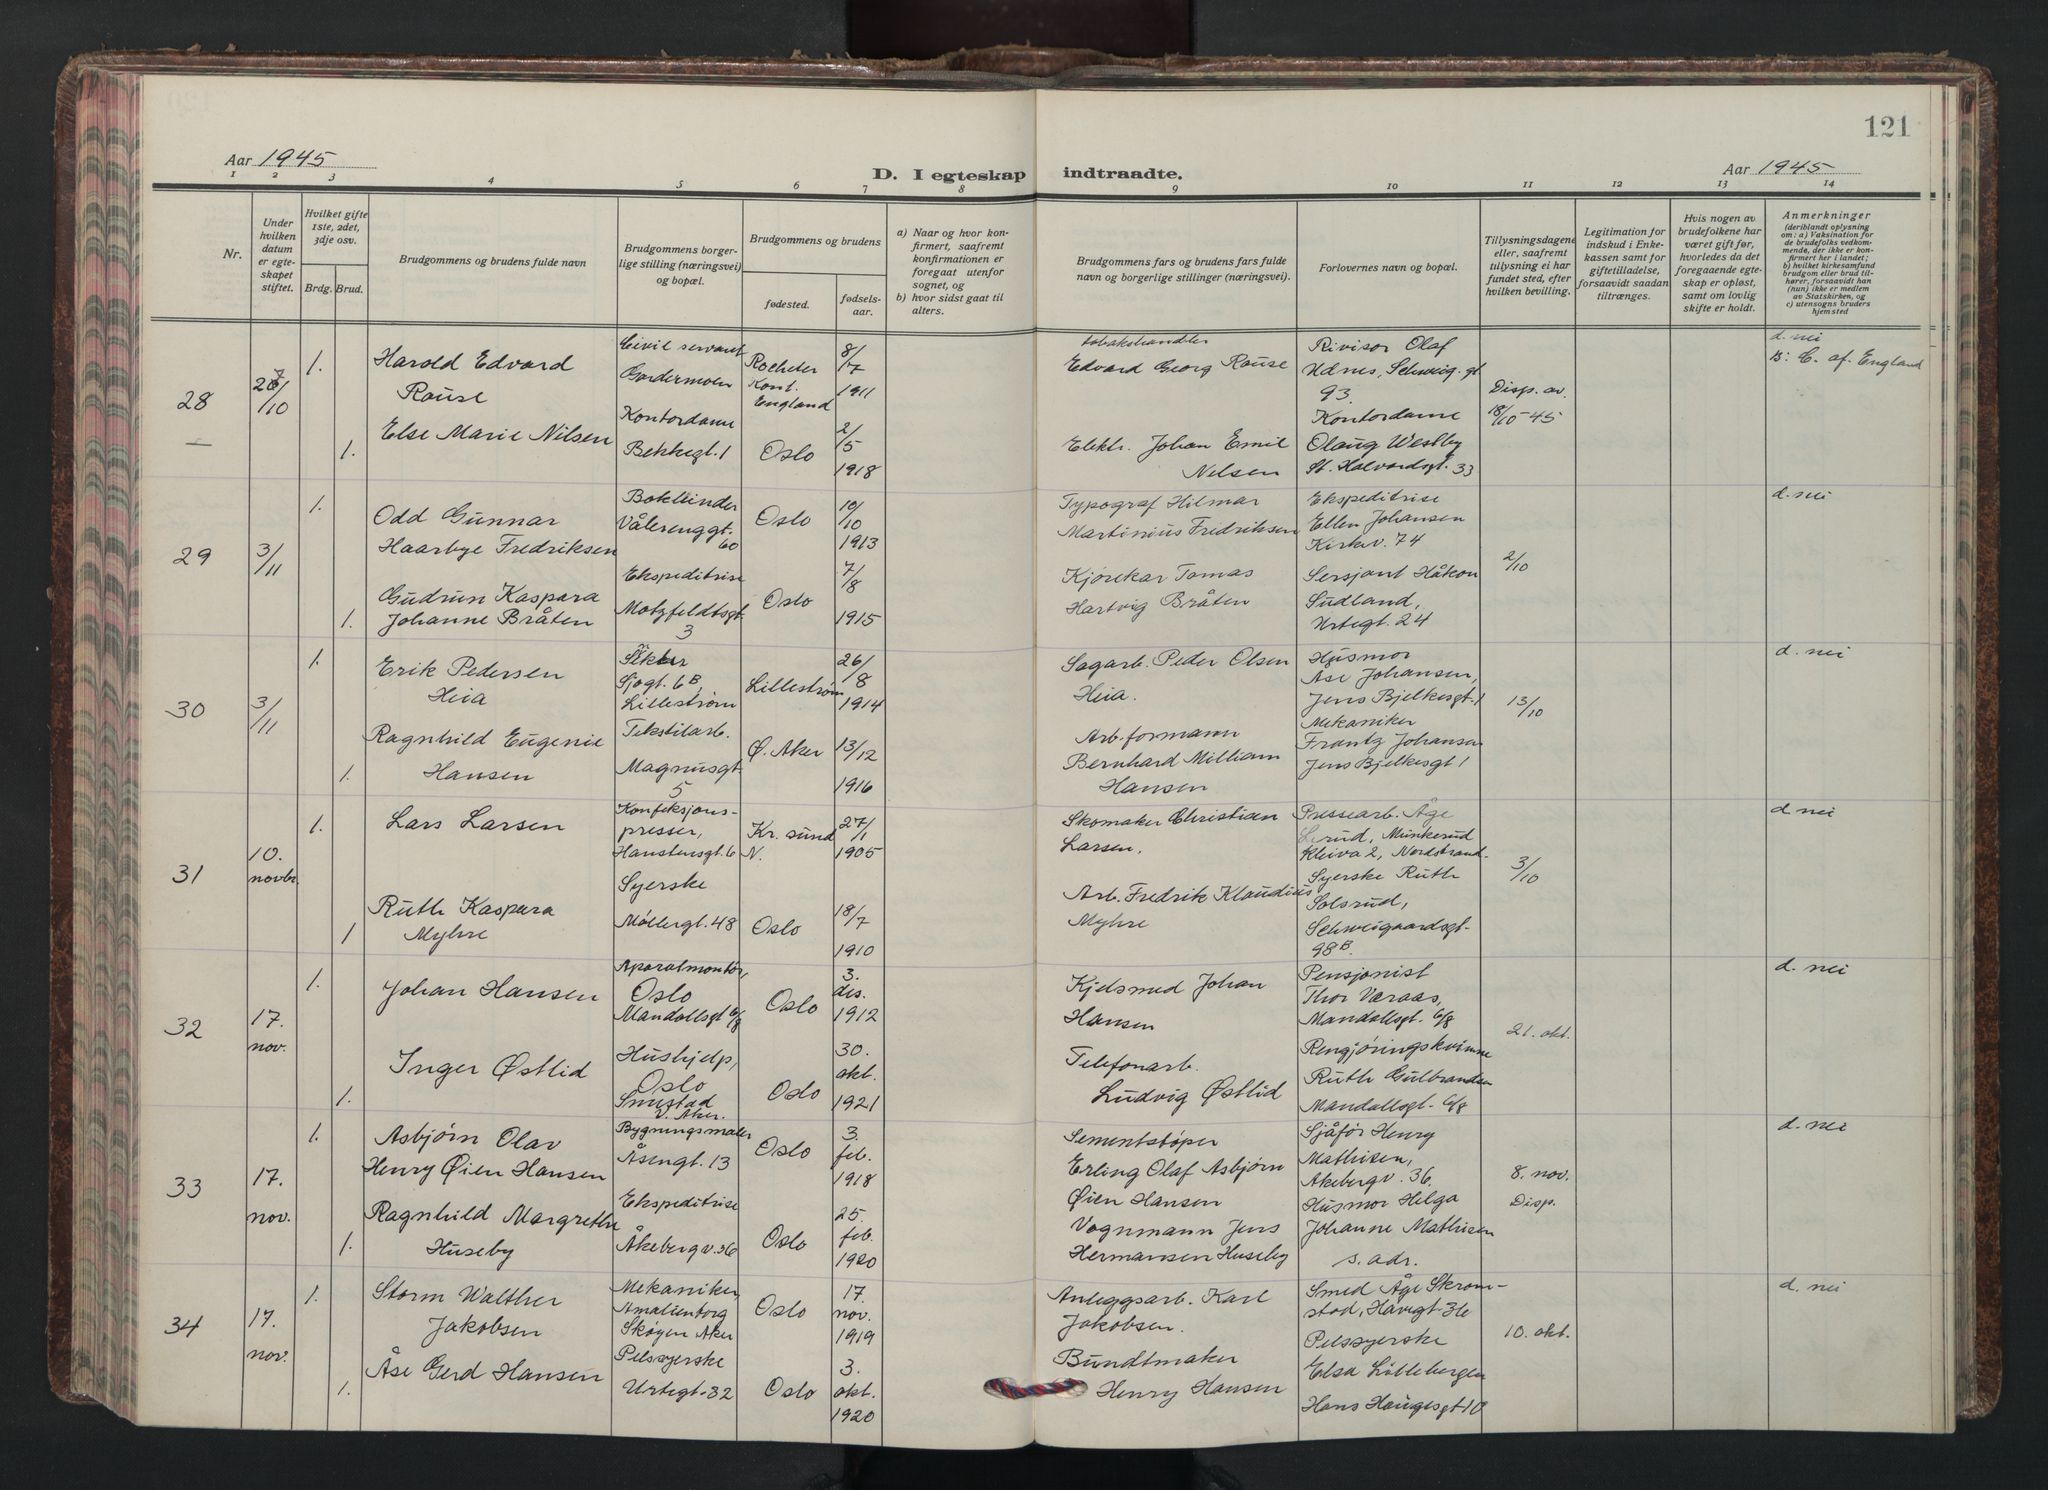 121
Aar 1945
D. I egteskap indtraadte.
Aar 1945
1 2 3 4 5 6 7 8 9 10 11 12 13 14
Nr.
Under hvilken datum er egteskapet stiftet.
Hvilket gifte 1ste, 2det, 3dje osv.
Brdg. Brud.
Brudgommens og brudens fulde navn
Brudgommens borgerlige stilling (næringsvei) og bopæl.
Brudgommens og brudens
fødested.
fødselsaar.
a) Naar og hvor konfirmert, saafremt konfirmationen er foregaat utenfor sognet, og
b) hvor sidst gaat til alters.
Brudgommens fars og brudens fars fulde navn og borgerlige stillinger (næringsvei).
Forlovernes navn og bopæl.
Tillysningsdagene eller, saafremt tillysning ei har fundet sted, efter hvilken bevilling.
Legitimation for indskud i Enkekassen samt for giftetilladelse, forsaavidt saadan tiltrænges.
Hvis nogen av brudefolkene har været gift før, hvorledes da det foregaaende egteskap er opløst, samt om lovlig skifte er holdt.
Anmerkninger
(deriblandt oplysning om: a) Vaksination for de brudefolks vedkommende, der ikke er konfirmert her i landet; b) hvilket kirkesamfund brudgom eller brud tilhører, forsaavidt han (hun) ikke er medlem av Statskirken, og c) utensogns bruders hjemsted
28
/10
1.
Harold Edvard
Rouse
Civil servant
Gardermoen
Rochester
Kent.
England
8/7
1911
tobakshandler
Edvard Georg Rouse
Rivisor Olaf
Udnes, Schweig.gt
93.
Disp. av
18/10-45
d. nei
B: C. of England
1.
Else Marie Nilsen
Kontordame
Bekkegt. 1
Oslo
2/5
1918
Elektr. Johan Emil
Nilsen
Kontordame
Olaug Westby
St. Halvardsgt. 33
29
3/11
1.
Odd Gunnar
Haarbye Fredriksen
Bokbinder
Vålerenggt.
60
Oslo
10/10
1913
Typograf Hilmar
Martinius Fredriksen
Ekspeditrise
Ellen Johansen
Kirkv. 74
2/10
d. nei
1.
Gudrun Kaspara
Johanne Bråten
Ekspeditrise
Motzfeldtsgt.
3
Oslo
7/8
1915
Kjørekar Tomas
Hartvig Bråten
Sersjant Håkon
Sudland,
Urtegt. 24
30
3/11
1.
Erik Pedersen
Heia
Sjøgt. 6B,
Lillestrøm
Lillestrøm
26/8
1914
Sagarb. Peder Olsen
Heia.
Husmor
Åse Johansen,
Jens Bjelkesgt. 1
13/10
d. nei
1.
Ragnhild Eugenie
Hansen
Tekstilarb.
Magnusgt.
5
Ø. Aker
13/12
1916
Arb.formann
Bernhard Milliam
Hansen
Mekaniker
Frantz Johansen
Jens Bjelkesgt 1
31
10.
novbr
1.
Lars Larsen
Konfeksjons-
presser,
Hanstensgt. 6
Kr. sund
N.
27/1
1905
Skomaker Christian
Larsen.
Pressearb. Åge
Munkerud
Kleiva 2, Nordstrand.
3/10
d. nei
1
Ruth Kaspara
Myhre
Syerske
Møllergt. 48
Oslo
18/7
1910
Arb. Fredrik Klaudius
Myhre
Syerske Ruth
Solsrud,
Schweigaardsgt.
98B.
32
17.
nov.
1.
Johan Hansen
Aparatmontør
Oslo
Mandallsgt 6/8
Oslo
3.
des.
1912
Kjelsmed Johan
Hansen
Pensjonist
ThorVæraas,
Mandallsgt. 6/8
21. okt.
d. nei
1.
Inger Østlid
Hushjelp,
Oslo
Smestad
V. Aker.
Oslo
30.
okt.
1921
Telefonarb.
Ludvig Østlid
Rengjøringskvinne
Ruth Gulbrandsen
Mandallsgt. 6/8
33
17.
nov.
1.
Asbjørn Olav
Henry Øien Hansen
Bygningsmaler
Åsengt. 13
Oslo
3.
feb.
1918
Sementstøper
Erling Olaf Asbjørn
Øien Hansen
Sjåfør Henry
Mathisen,
Åkebergv. 36.
8. nov.
Disp.
d. nei
1.
Ragnhild Margrethe
Huseby
Ekspeditrise
Åkebergv. 36
Oslo
25.
feb.
1920
Vognmann Jens
Hermansen Huseby
Husmor Helga
Johanne Mathisen
s. adr.
34
17.
nov.
1.
Storm Walther
Jakobsen
Mekaniker
Amalienborg
Skøyen Aker
Oslo
17.
nov.
1919
Anleggsarb. Karl
Jakobsen.
Smed Åge Skrom-
stad, Havegt. 36
10. okt.
d. nei
1.
Åse Gerd Hansen
Pelssyerske
Urtegt. 32
Oslo
3.
okt.
1920
Bundtmaker
Henry Hansen
Pelssyerske
Elsa Løtlebergen
Hans Haugesgt 10